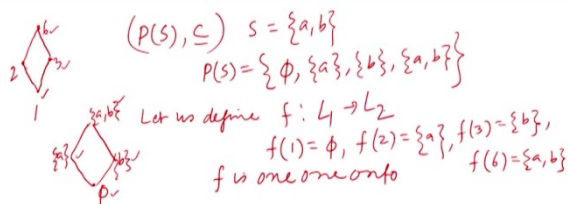 6
(P(S), ⊆) S = {a,b}
2 3
P(S) = {ϕ, {a}, {b}, {a,b}}
1
{a,b} Let us define f : L₁ → L₂
{a} {b} f(1) = ϕ, f(2) = {a}, f(3) = {b},
f(6) = {a,b}
ϕ f is one one onto